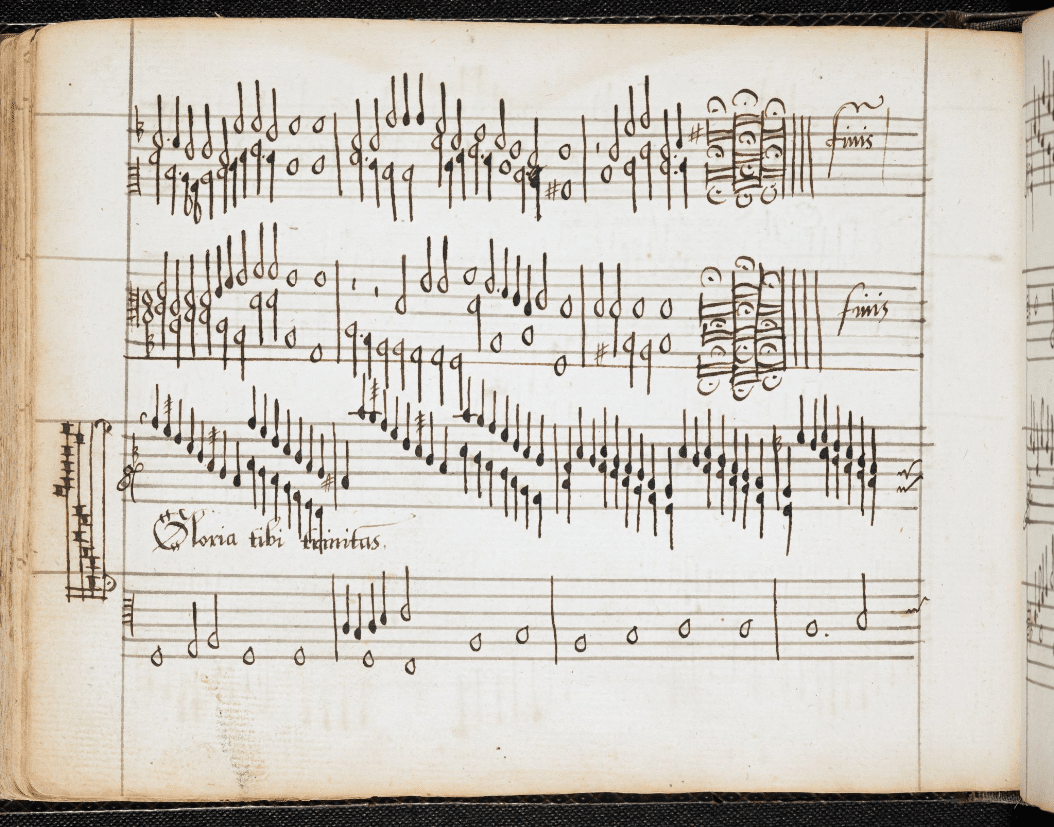 finis
finis
Gloria tibi trinitas.